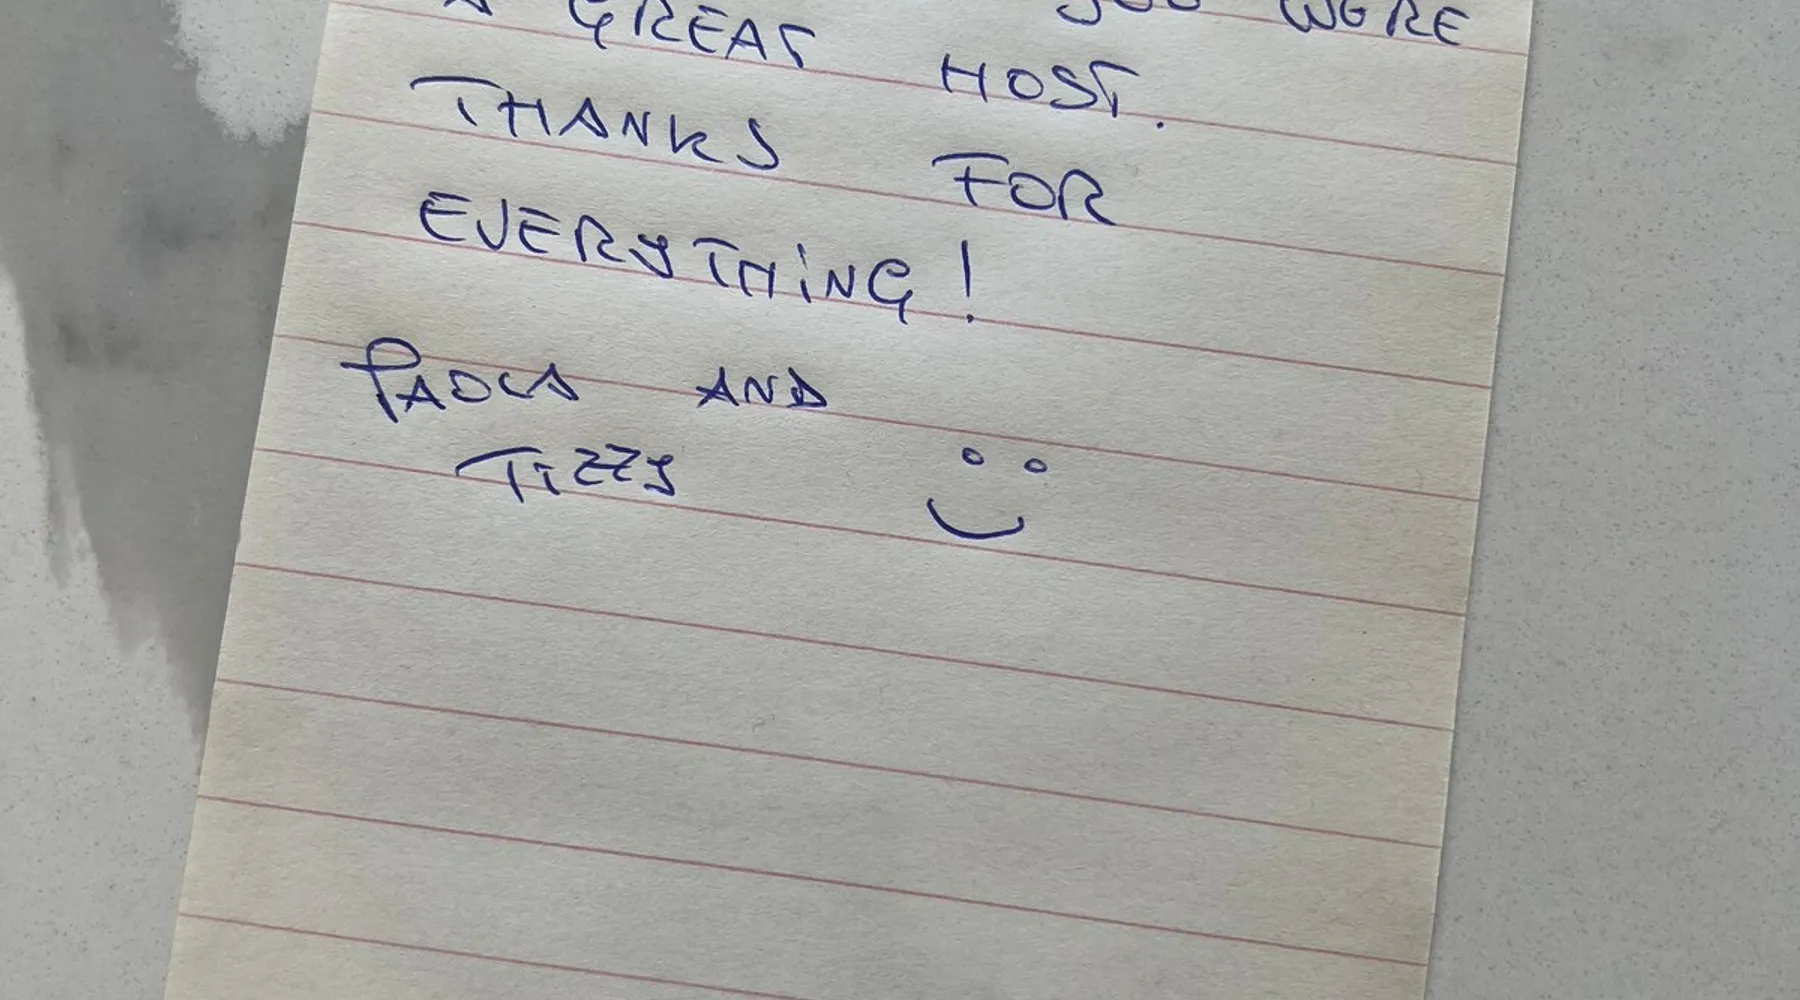 YOU WERE
A GREAT HOST.
THANKS FOR
EVERYTHING!
PAOLA AND
TIZZY